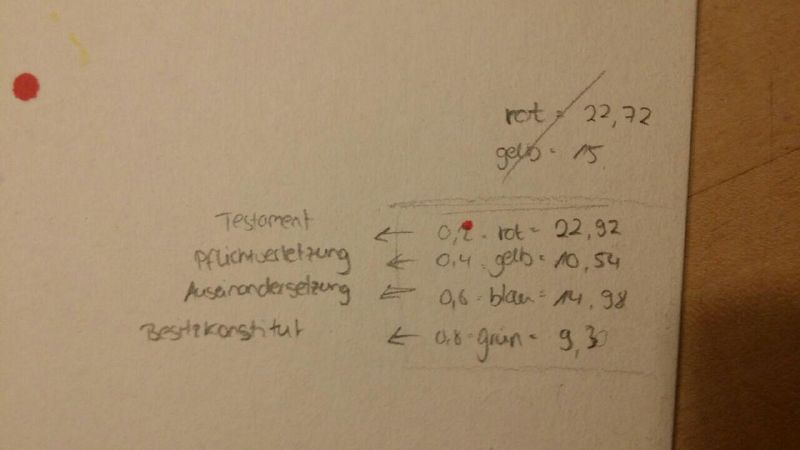 rot = 22,72
gelb = 15
Testament ← 0,2 - rot = 22,92
Pflichtverletzung ← 0,4 - gelb = 10,54
Auseinandersetzung ← 0,6 - blau = 14,98
Besitzkonstitut ← 0,8 - grün = 9,30